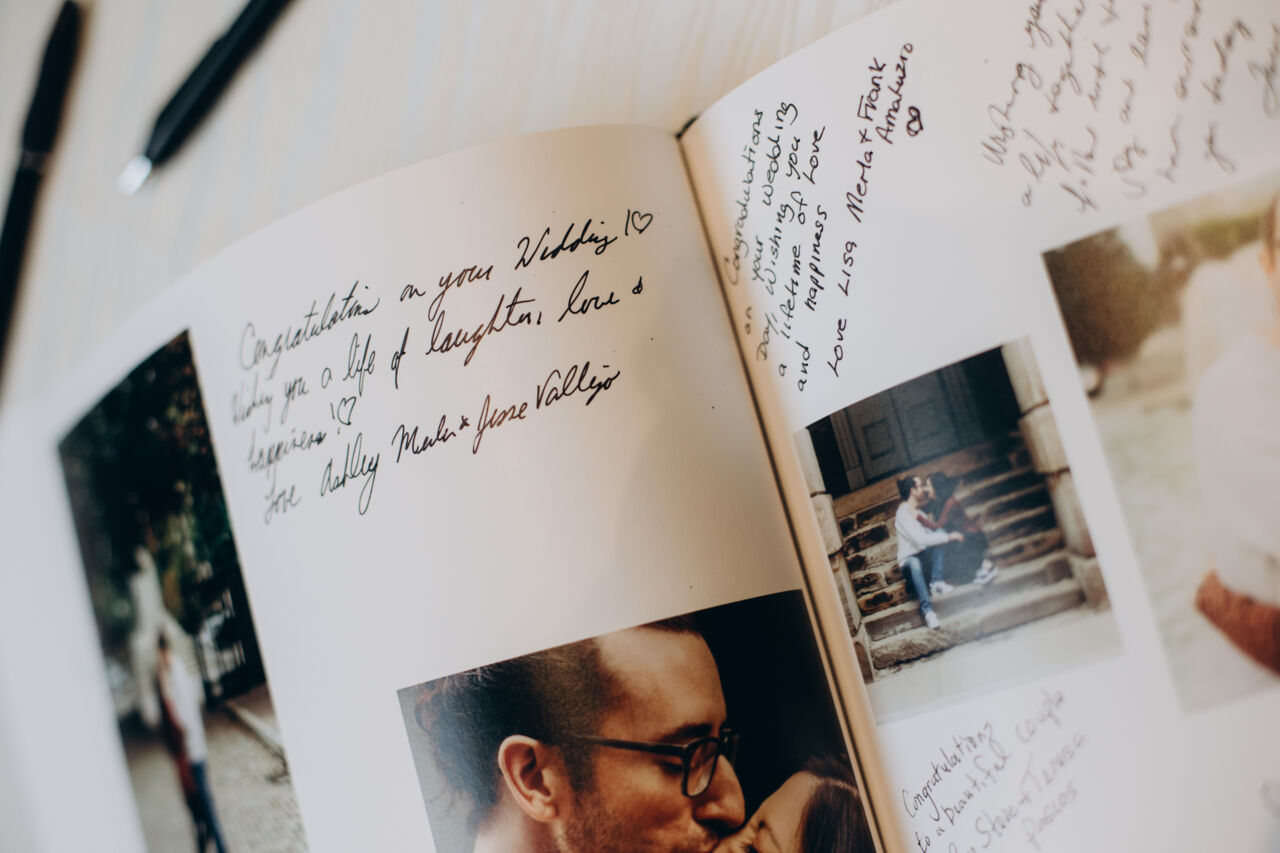 Congratulations on your Wedding! ♡
Wishing you a life of laughter, love &
happiness! ♡
Love Ashley & Jesse Vallejo
Congradulations
on your wedding
Day, Wishing you
a lifetime of Love
and happiness
Love Lisa Merla + Frank
Amatuzzo
♡
Wishing
a life together
you today
Congratulations
to a beautiful couple
Steve + Teresa